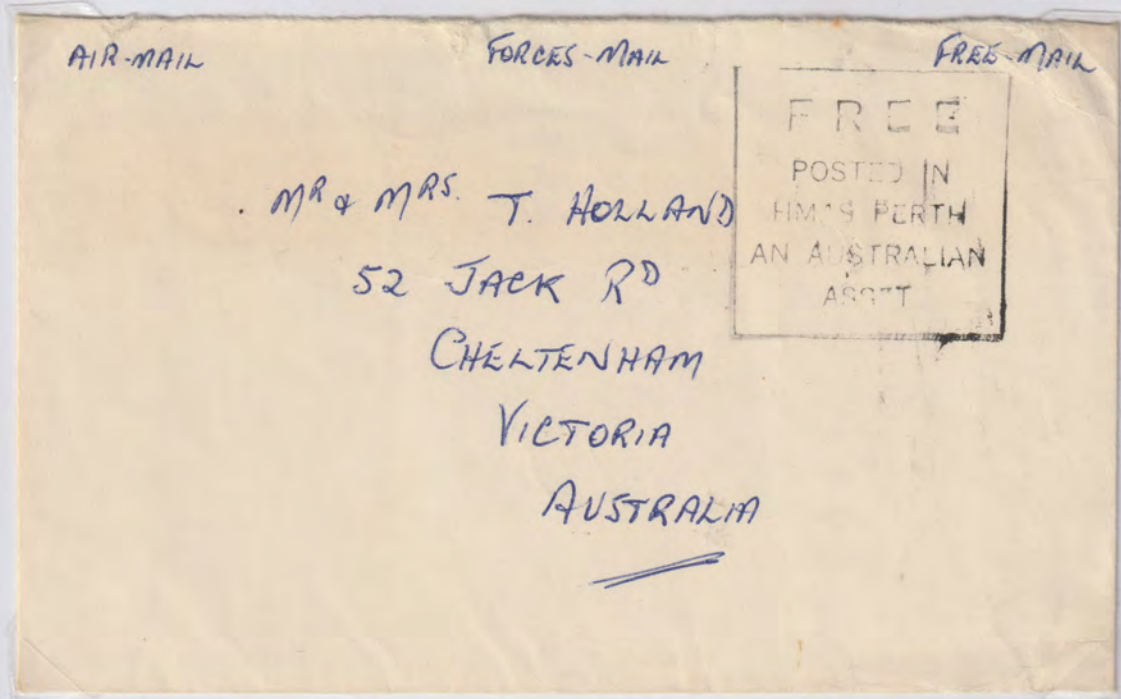 AIR-MAIL FORCES-MAIL FREE-MAIL
FREE
POSTED IN
HMAS PERTH
AN AUSTRALIAN
ASSET
MR & MRS. T. HOLLAND
52 JACK RD
CHELTENHAM
VICTORIA
AUSTRALIA